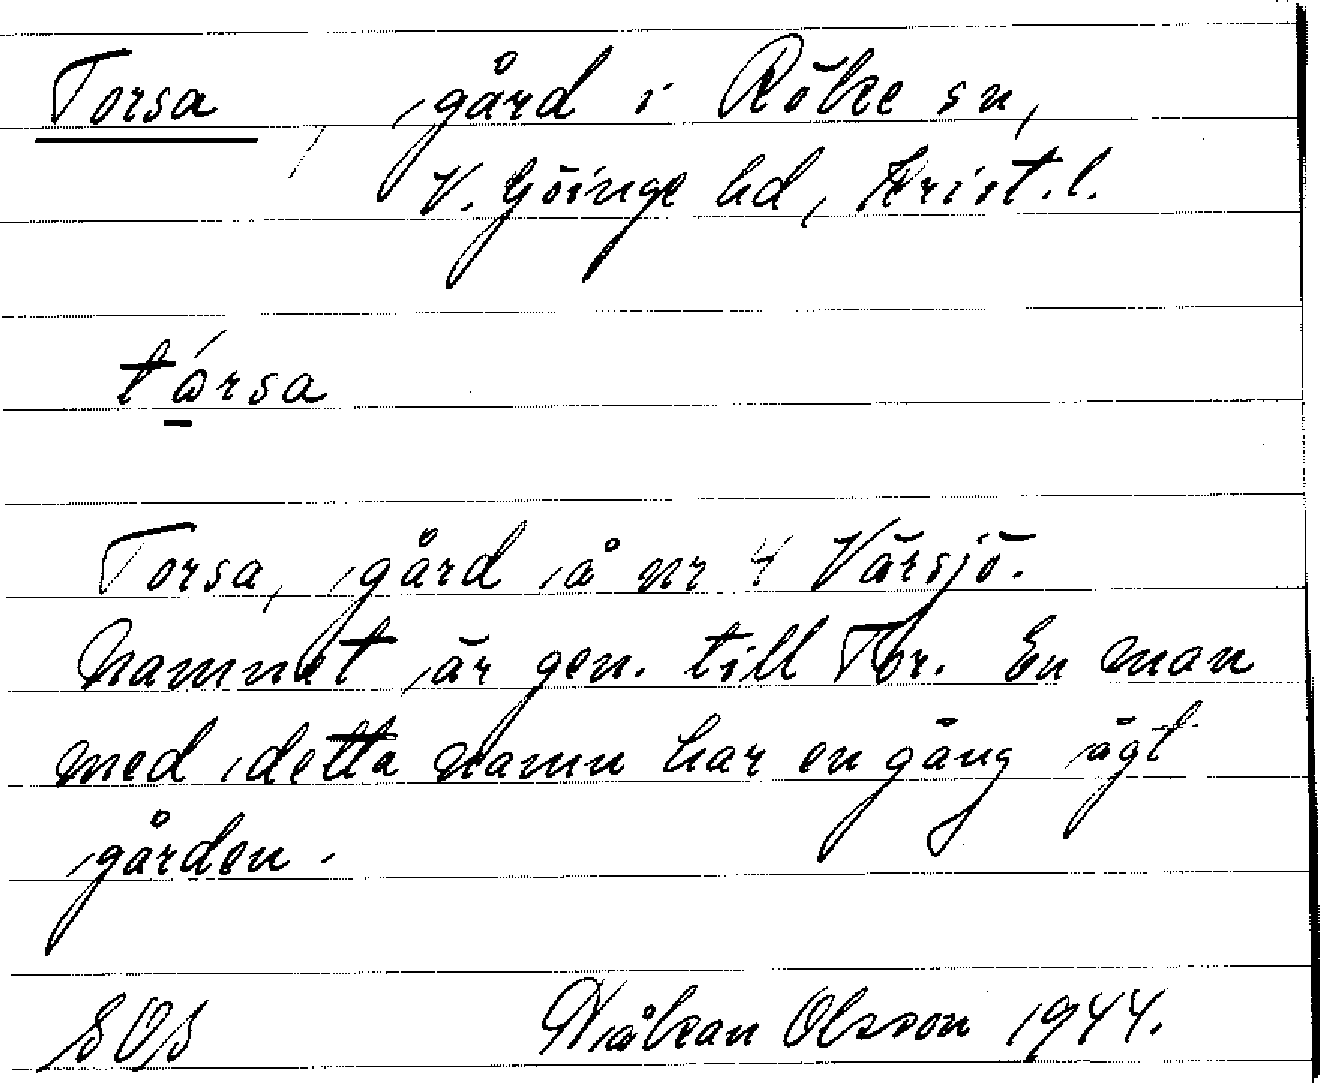 Torsa, gård i Röke sn,
V. Göinge hd, Krist. l.
tórsa
Torsa, gård å nr 4 Värsjö.
Namnet är gen. till Tor. En man
med detta namn har en gång ägt
gården.
SOS Håkan Olsson 1944.